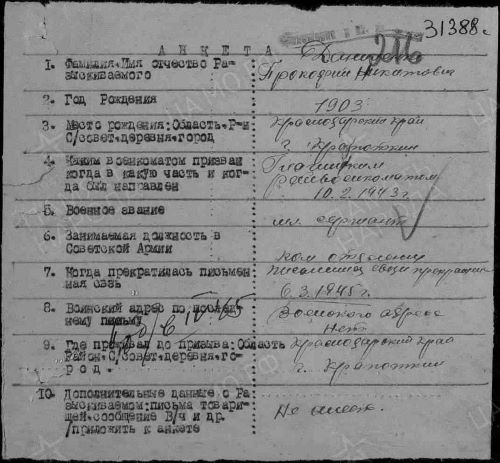 31388с
216
АНКЕТА
1. Фамилия.Имя отчество Ра-
зыскиваемого
Прокофий Никитович
2. Год Рождения
1903.
3. Место рождения:Область.Р-н
С/совет.деревня.город
Краснодарский край
г. Кропоткин
4. Каким военкоматом призван
когда в какую часть и ког-
да был направлен
райвоенкоматом
10.2.1943 г.
5. Военное звание
мл. сержант
6. Занимаемая должность в
Советской Армии
ком отделения
7. Когда прекратилась письмен
ная связь
письменная связь прекращена
6.3.1945 г.
8. Воинский адрес по последн
нему письму
Воинского адреса
нет
9. Где проживал до призыва:Область
Район.С/совет.деревня.го-
род.
Краснодарский край
г. Кропоткин
10. Дополнительные данные о Ра
зыскиваемом:письма товари-
щей.сообщение В/ч и др.
/приложить к анкете
Не имеем.